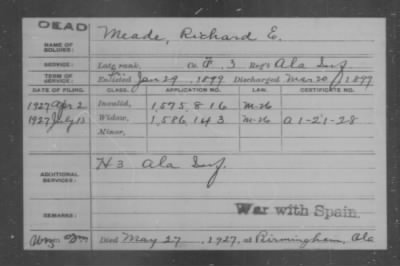 DEAD
Meade, Richard E.
NAME OF SOLDIER:
SERVICE: Late rank, Co. F. 3 Reg't Ala Inf
TERM OF SERVICE: Enlisted Jan 29, 1899 Discharged Mar 20, 1899
DATE OF FILING. CLASS. APPLICATION NO. LAW. CERTIFICATE NO.
1927 Apr 2 Invalid, 1,575,816 M-26
1927 July 13 Widow, 1,586,143 M-26 A1-21-28
Minor,
ADDITIONAL SERVICES: H 3 Ala Inf.
REMARKS: War with Spain.
Died May 27, 1927, at Birmingham, Ala